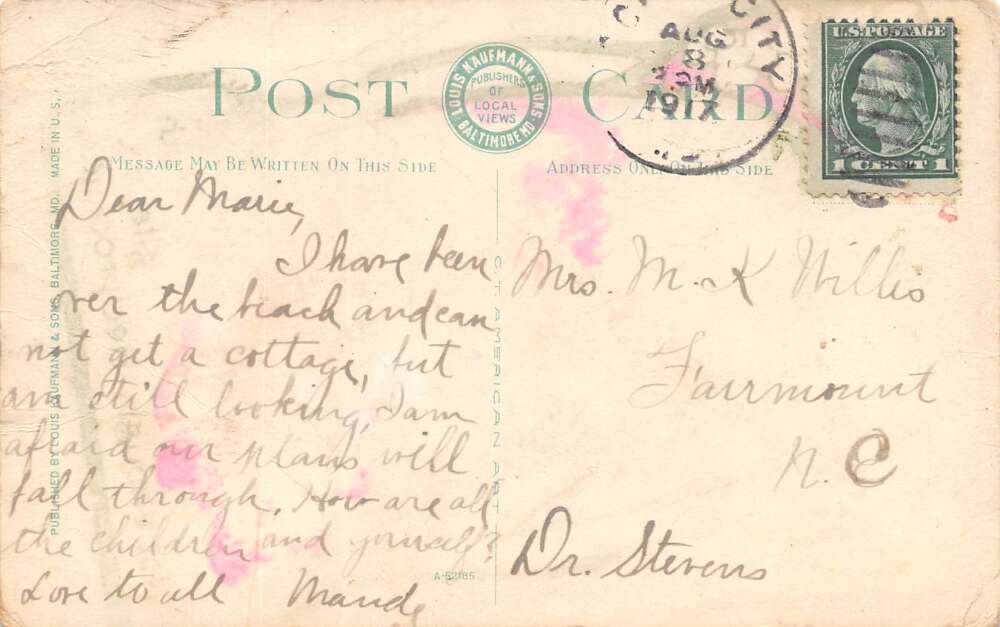 POST CARD
LOUIS KAUFMANN & SONS
PUBLISHERS
OF
LOCAL
VIEWS
BALTIMORE MD.
CITY
AUG
8
PM
1917
U.S. POSTAGE
1 CENT 1
MESSAGE MAY BE WRITTEN ON THIS SIDE
ADDRESS ONLY ON THIS SIDE
PUBLISHED BY LOUIS KAUFMANN & SONS, BALTIMORE, MD. MADE IN U.S.
Dear Marie,
I have been
over the beach and can
not get a cottage, but
am still looking, I am
afraid our plans will
fall through. How are all
the children and yourself?
Love to all Maude
AMERICAN ART
A-52185
Mrs. M. K Willis
Fairmount
N. C
Dr. Stevens